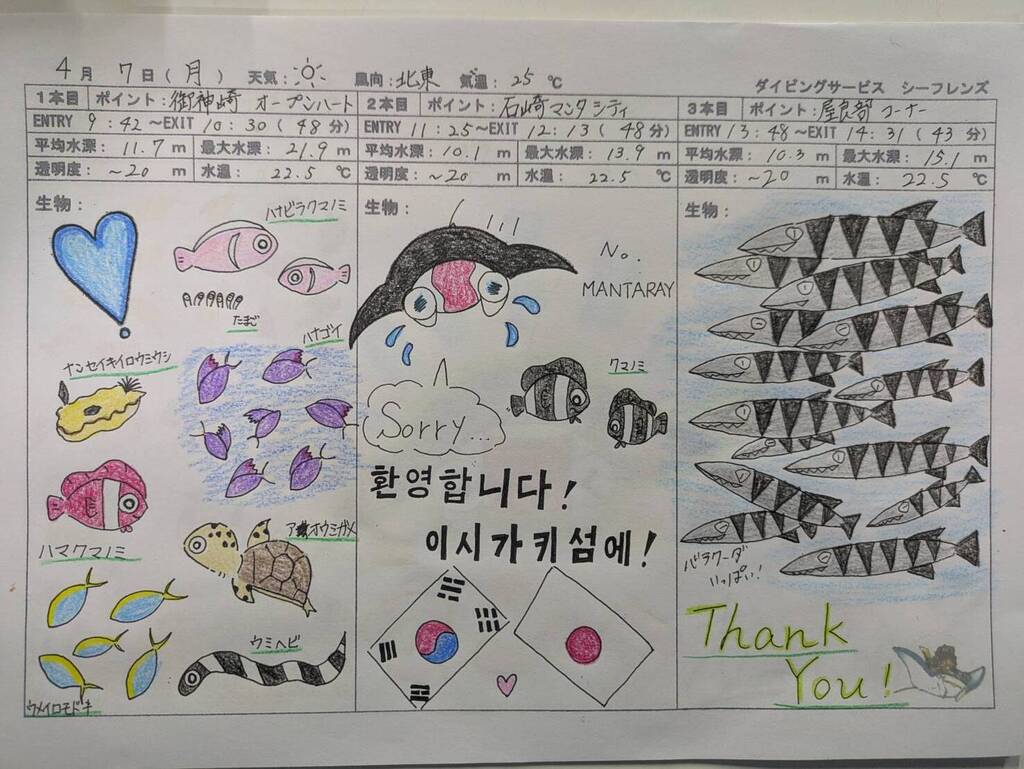 4月 7日(月) 天気: 風向:北東 気温:25℃
ダイビングサービス シーフレンズ
1本目 ポイント:御神崎 オープンハート
ENTRY 9:42~EXIT 10:30(48分)
平均水深:11.7m 最大水深:21.9m
透明度:~20m 水温:22.5℃
生物:
ハナビラクマノミ
たまご
ハナゴイ
ナンセイキイロウミウシ
ハマクマノミ
アオウミガメ
ウミヘビ
ウメイロモドキ
2本目 ポイント:石崎マンタシティ
ENTRY 11:25~EXIT 12:13(48分)
平均水深:10.1m 最大水深:13.9m
透明度:~20m 水温:22.5℃
生物:
No.
MANTARAY
クマノミ
Sorry...
환영합니다!
이시가키섬에!
3本目 ポイント:屋良部コーナー
ENTRY 13:48~EXIT 14:31(43分)
平均水深:10.3m 最大水深:15.1m
透明度:~20m 水温:22.5℃
生物:
バラクーダ
いっぱい!
Thank
You!